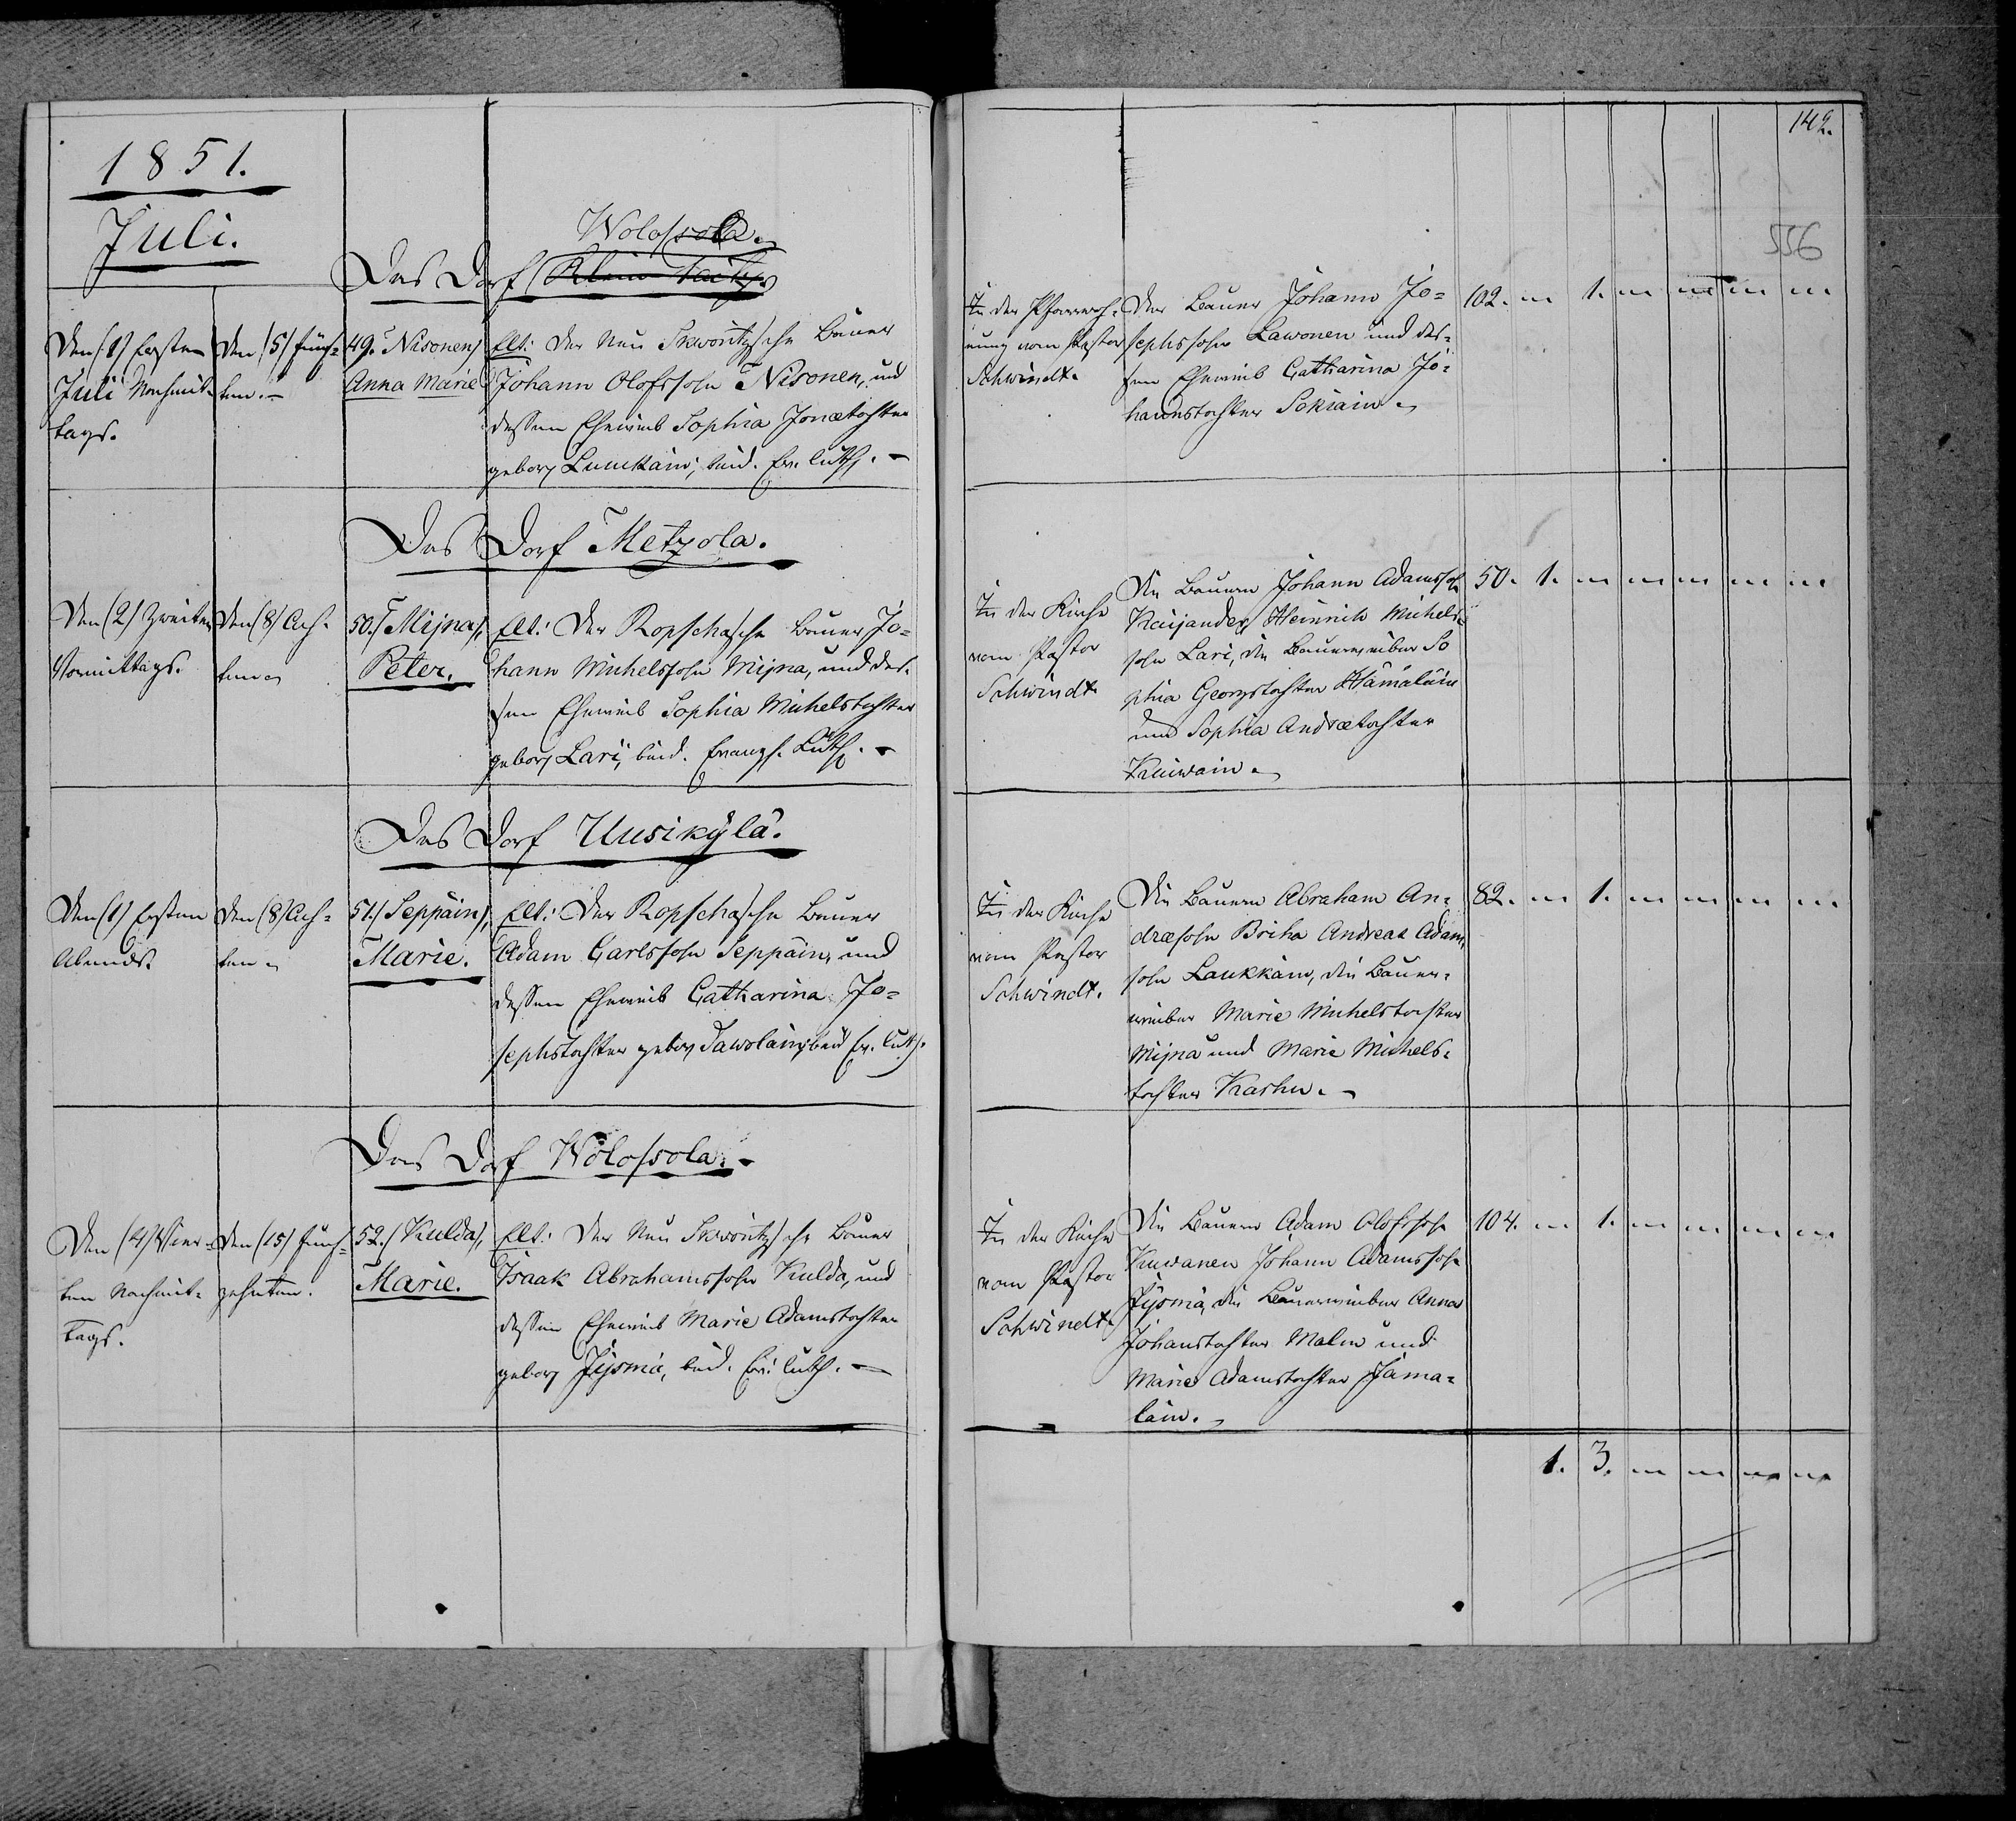 1851.
Juli.
Wolossola.
Das Dorf Klein Taitz.
Den (1) Ersten
Juli Nachmit-
tags.
Den (5) Fünf-
ten.
49. Nisonen,
Anna Marie
Elt: Der Neu Skworitzsche Bauer
Johann Olofssohn Nisonen, und
dessen Eheweib Sophia Jonætochter
geborn Lumkäin, beid. Ev. luth.
Das Dorf Metzola.
Den (2) Zweiten
Vormittags.
Den (8) Ach-
ten
50.) Mijna,
Peter.
Elt: Der Ropschasche Bauer Jo-
hann Michelssohn Mijna, und des-
sen Eheweib Sophia Michelstochter
geborn Lari, beid. Evangl. Luth.
Das Dorf Uusikylä.
Den (1) Ersten
Abends.
Den (8) Ach-
ten
51.) Seppäin,
Marie.
Elt: Der Ropschasche Bauer
Adam Carlssohn Seppäin, und
dessen Eheweib Catharina Jo-
sephstochter geborn Sawolain, beid Ev. luth.
Das Dorf Wolossola.
Den (4) Vier-
ten Nachmit-
tags.
Den (15) Funf-
zehnten.
52.) Kulda,
Marie.
Elt: Der Neu Skworitzsche Bauer
Isaak Abrahamssohn Kulda, und
dessen Eheweib Marie Adamstochter
geborn Jijsmä, beid. Ev. luth.
142.
556
In der Pfarrwoh-
nung vom Pastor
Schwindt.
Der Bauer Johann Jo-
sephssohn Lawonen und des-
sen Eheweib Catharina Jo-
hannstochter Sokiain
102. " 1. " " " "
In der Kirche
vom Pastor
Schwindt
Die Bauern Johann Adamssohn
Kaijander, Heinrich Michels-
sohn Lari, die Bauerweiber So
phia Georgstochter Hämäläin
und Sophia Andreætochter
Kuiwain.
50. 1. " " " " "
In der Kirche
vom Pastor
Schwindt.
Die Bauern Abraham An-
dræsohn Briha Andreas Adams
sohn Laukkain, die Bauer-
weiber Marie Michelstochter
Mijna und Marie Michels-
tochter Karhu.
82. " 1. " " " "
In der Kirche
vom Pastor
Schwindt
Die Bauern Adam Olofssohn
Kuiwanen Johann Adamssohn
Jijsmä, die Bauerweiber Anna
Johanstochter Malin und
Marie Adamstochter Häma-
läin.
104. " 1. " " " "
1. 3. " " " "